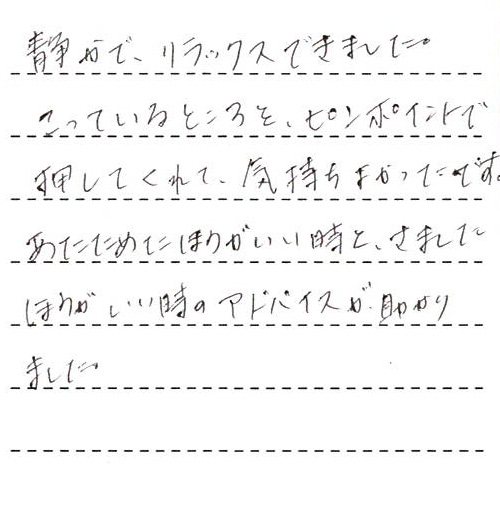 静かで、リラックスできました。
こっているところを、ピンポイントで
押してくれて、気持ちよかったです。
あたためたほうがいい時と、さました
ほうがいい時のアドバイスが助かり
ました。